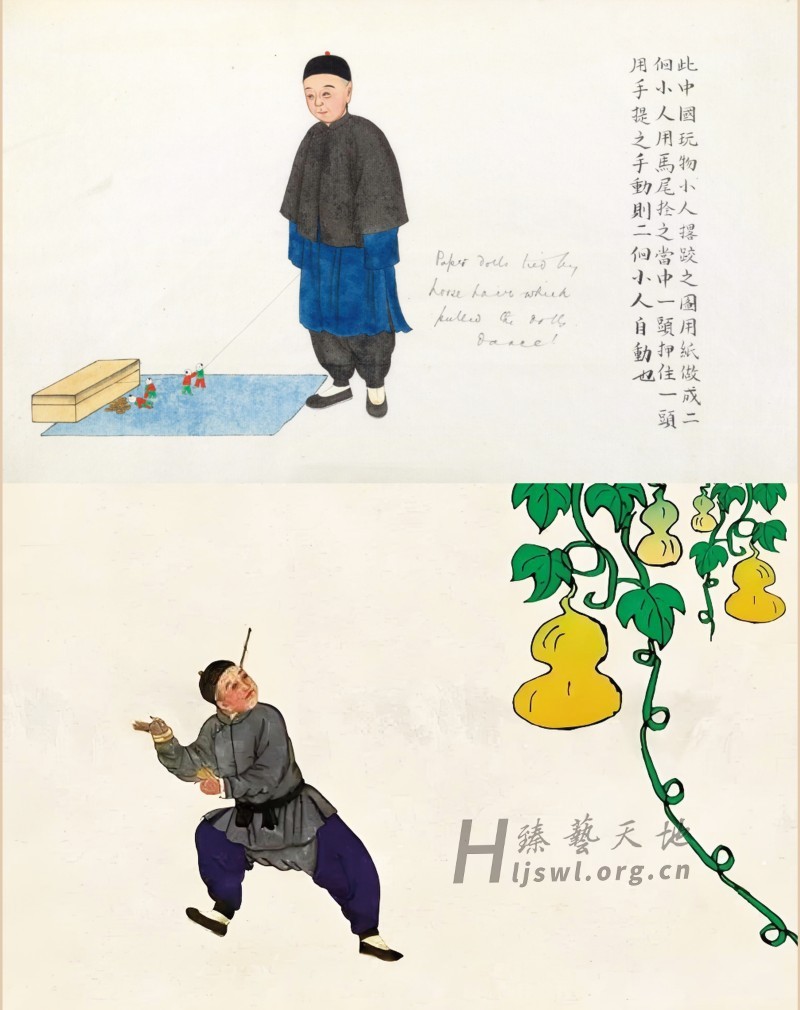 此中國玩物小人撂跤之圖用紙做成二
佪小人用馬尾拴之當中一頭押住一頭
用手提之手動則二佪小人自動也
Paper dolls tied by
horse hair which
pulled the dolls
dance!
臻藝天地
Hljswl.org.cn